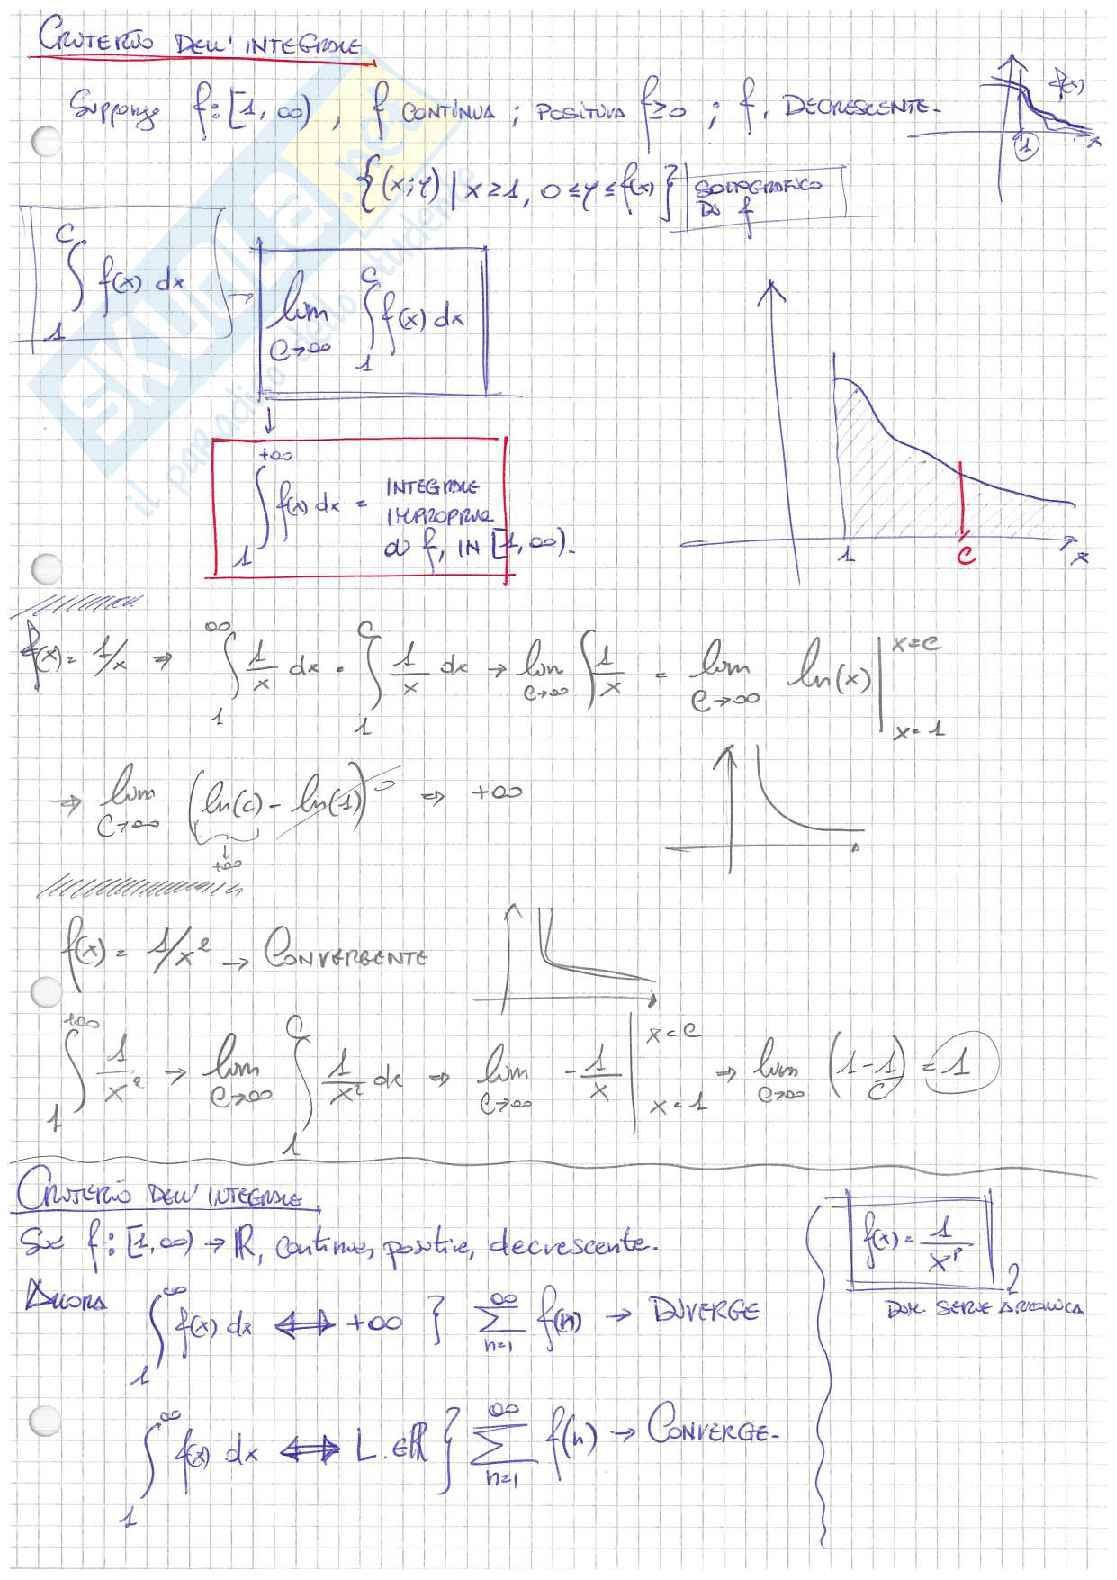 CRITERIO DELL' INTEGRALE
Suppongo f: [1, ∞) , f CONTINUA ; POSITIVA f≥0 ; f. DECRESCENTE.
f(x)
x
1
{(x;y) | x≥1, 0≤y≤f(x)} SOTTOGRAFICO DI f
∫₁^C f(x) dx → lim C→∞ ∫₁^C f(x) dx
↓
∫₁^{+∞} f(x) dx = INTEGRALE
IMPROPRIO
DI f, IN [1, ∞).
1 C x
f(x) = 1/x ⇒ ∫₁^∞ 1/x dx = ∫₁^C 1/x dx → lim C→∞ ∫ 1/x = lim C→∞ ln(x) | x=C x=1
⇒ lim C→∞ (ln(C) - ln(1)) 0 ⇒ +∞
↓
+∞
f(x) = 1/x² → CONVERGENTE
∫₁^{+∞} 1/x² → lim C→∞ ∫₁^C 1/x² dx ⇒ lim C→∞ -1/x | x=C x=1 ⇒ lim C→∞ (1-1/C) = 1
CRITERIO DELL' INTEGRALE
Sia f: [1, ∞) → ℝ, continua, positiva, decrescente.
ALLORA ∫₁^∞ f(x) dx ⟺ +∞ } ∑_{n=1}^∞ f(n) → DIVERGE
∫₁^∞ f(x) dx ⟺ L ∈ℝ } ∑_{n=1}^∞ f(n) → CONVERGE.
f(x) = 1/x^p
SERIE ARMONICA